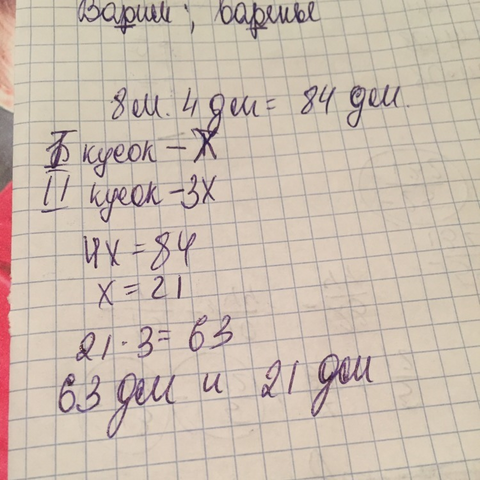 Варим; варенье
8 м. 4 дм = 84 дм.
I кусок – X
II кусок – 3X
4X = 84
x = 21
21 · 3 = 63
63 дм и 21 дм